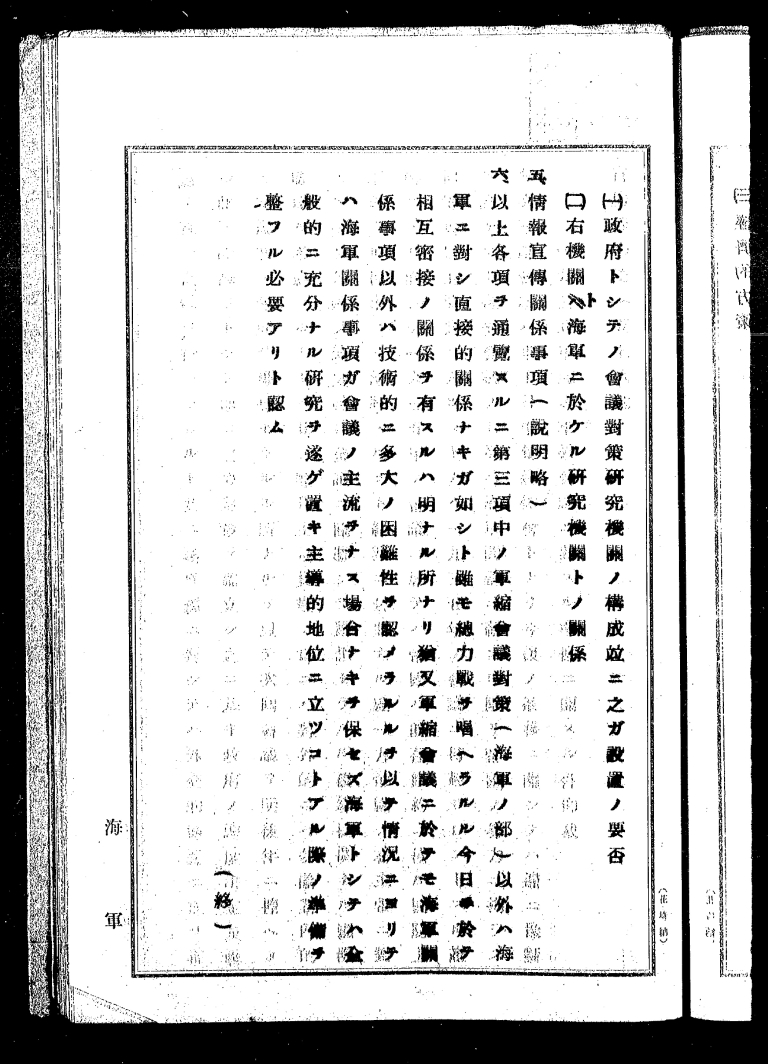 (一)政府トシテノ會議對策研究機關ノ構成竝ニ之ガ設置ノ要否
(二)右機關ト海軍ニ於ケル研究機關トノ關係
五、情報宣傳關係事項(說明略)
六、以上各項ヲ通覽スルニ第三項中ノ軍縮會議對策(海軍ノ部)以外ハ海
軍ニ對シ直接的關係ナキガ如シト雖モ總力戰ヲ唱ヘラルル今日ニ於テ
相互密接ノ關係ヲ有スルハ明ナル所ナリ猶又軍縮會議ニ於テモ海軍關
係事項以外ハ技術的ニ多大ノ困難性ヲ認メラルルヲ以テ情況ニヨリテ
ハ海軍關係事項ガ會議ノ主流ヲナス場合ナキヲ保セズ海軍トシテハ全
般的ニ充分ナル研究ヲ遂ゲ置キ主導的地位ニ立ツコトアル際ノ準備ヲ
整フル必要アリト認ム
(終)
海軍